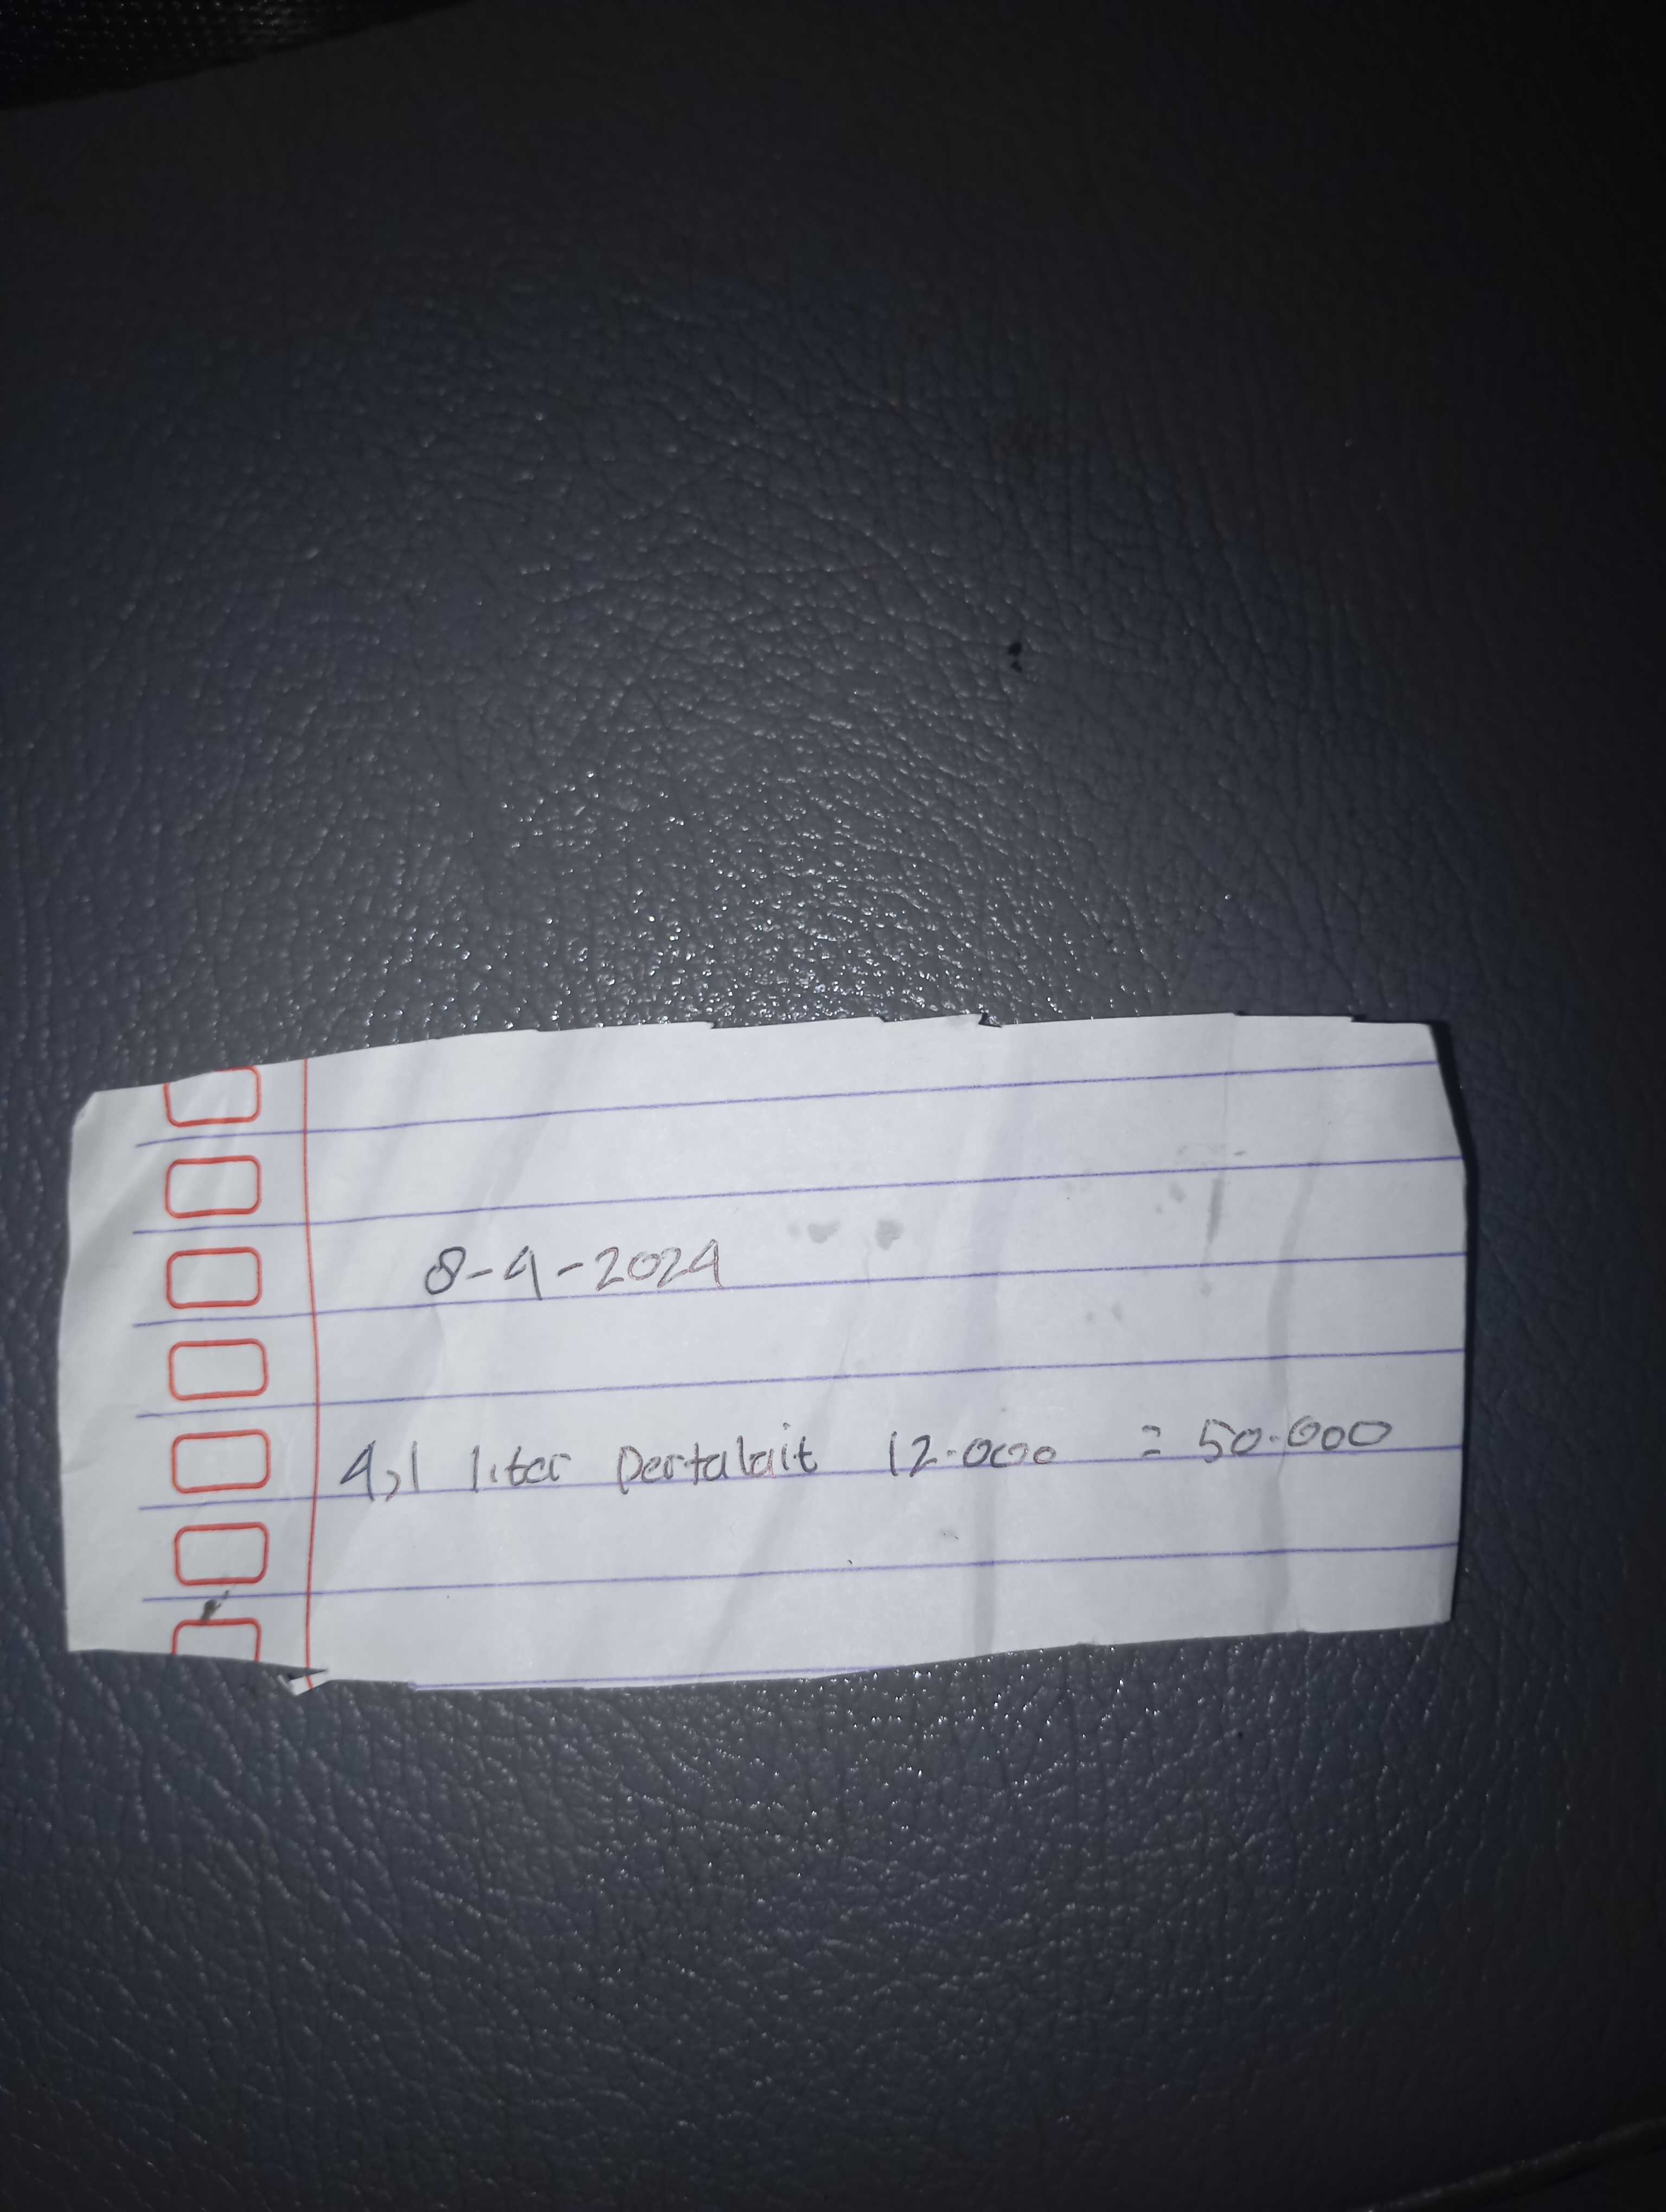 8-4-2024
4,1 liter Pertalait 12.000 = 50.000